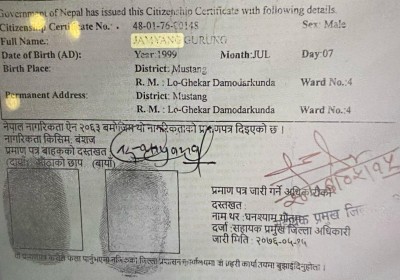 Government of Nepal has issued this Citizenship Certificate with following details.
Citizenship Certificate No.: 48-01-76-00148 Sex: Male
Full Name: JAMYANG GURUNG
Date of Birth (AD): Year:1999 Month:JUL Day:07
Birth Place: District: Mustang
R. M. : Lo-Ghekar Damodarkunda Ward No.:4
Permanent Address: District: Mustang
R. M. : Lo-Ghekar Damodarkunda Ward No.:4
नेपाल नागरिकता ऐन २०६३ बमोजिम यो नागरिकताको प्रमाणपत्र दिइएको छ।
नागरिकता किसिम: वंशज
प्रमाण पत्र बाहकको दस्तखत
(दायाँ) औंठाको छाप (बायाँ)
प्रमाण पत्र जारी गर्ने अधिकारीको
दस्तखत :
नाम थर :घनश्याम गौतम
प्रमुख जि
दर्जा :सहायक प्रमुख जिल्ला अधिकारी
जारी मिति : २०७६-०५-१५